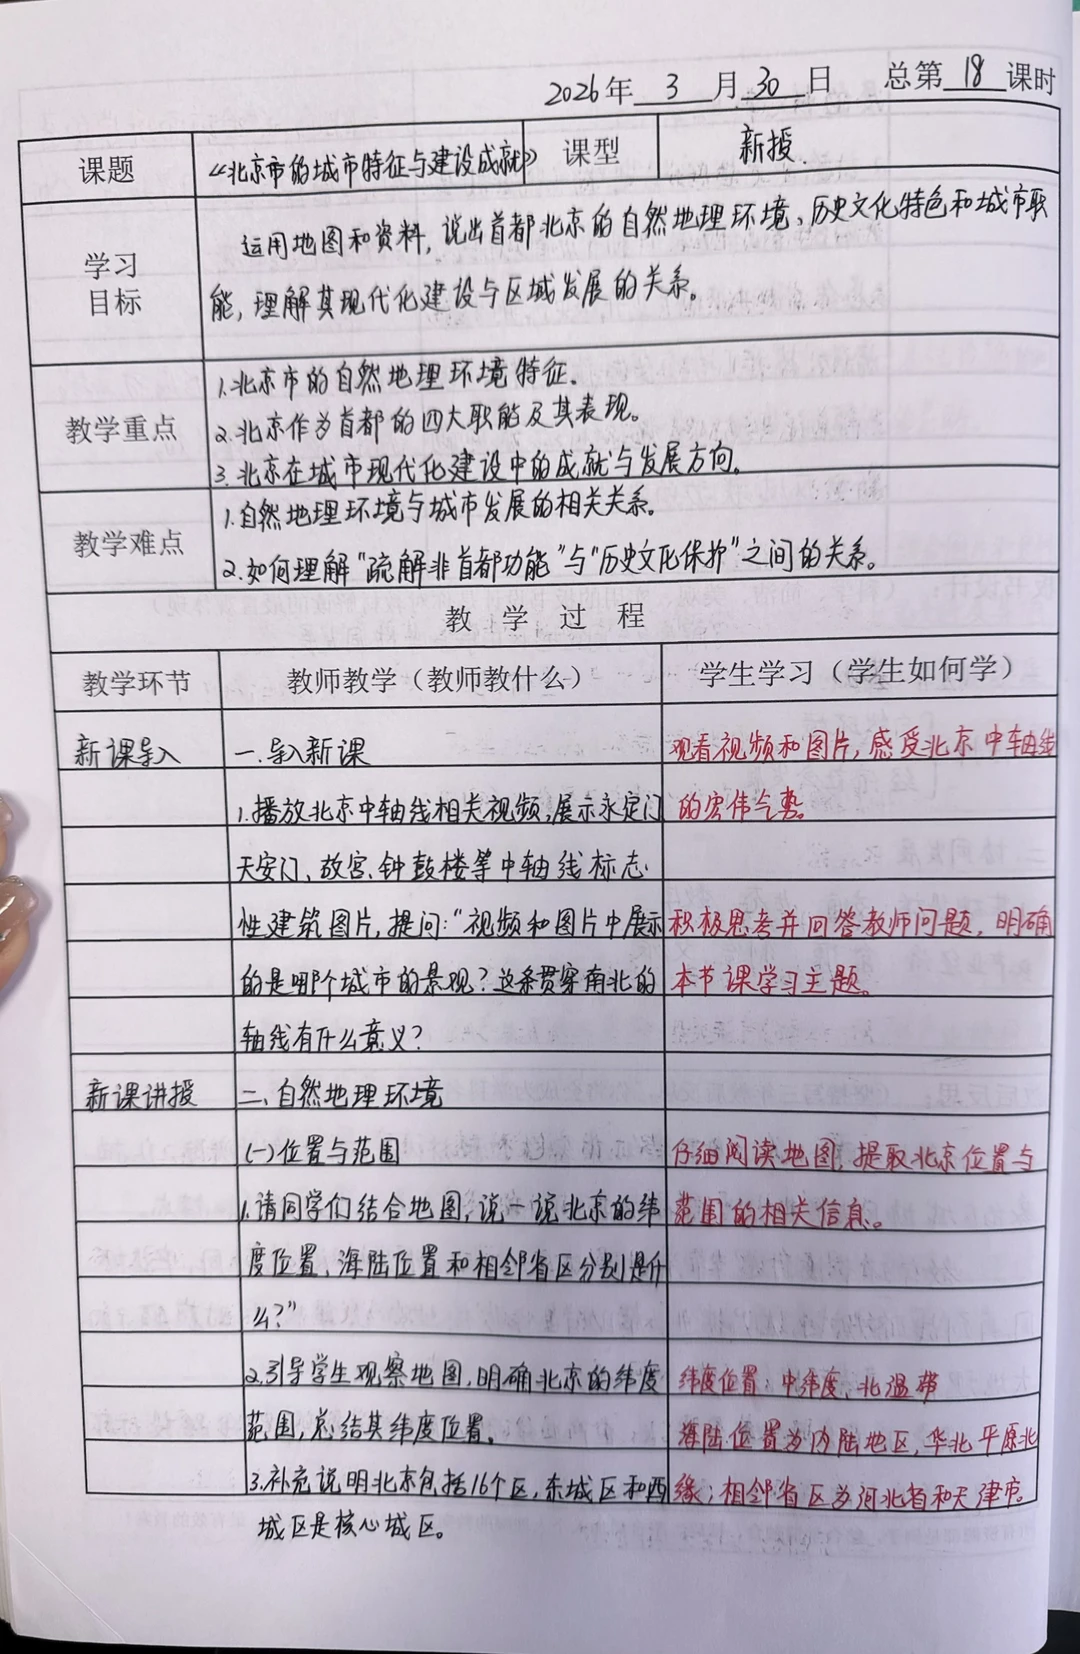 2026年 3 月 30 日 总第 18 课时
课题 《北京市的城市特征与建设成就》 课型 新授.
学习目标
运用地图和资料,说出首都北京的自然地理环境、历史文化特色和城市职
能,理解其现代化建设与区域发展的关系。
教学重点
1.北京市的自然地理环境特征.
2.北京作为首都的四大职能及其表现。
3.北京在城市现代化建设中的成就与发展方向。
教学难点
1.自然地理环境与城市发展的相关关系。
2.如何理解"疏解非首都功能"与"历史文化保护"之间的关系。
教 学 过 程
教学环节 教师教学(教师教什么) 学生学习(学生如何学)
新课导入 一.导入新课 观看视频和图片,感受北京中轴线
1.播放北京中轴线相关视频,展示永定门 的宏伟气势。
天安门、故宫、钟鼓楼等中轴线标志
性建筑图片,提问:"视频和图片中展示 积极思考并回答教师问题,明确
的是哪个城市的景观?这条贯穿南北的 本节课学习主题。
轴线有什么意义?
新课讲授 二、自然地理环境
(一)位置与范围 仔细阅读地图,提取北京位置与
1.请同学们结合地图,说一说北京的纬 范围的相关信息。
度位置、海陆位置和相邻省区分别是什
么?"
2.引导学生观察地图,明确北京的纬度 纬度位置:中纬度、北温带
范围,总结其纬度位置。 海陆位置为内陆地区,华北平原北
3.补充说明北京包括16个区,东城区和西 缘;相邻省区为河北省和天津市。
城区是核心城区。